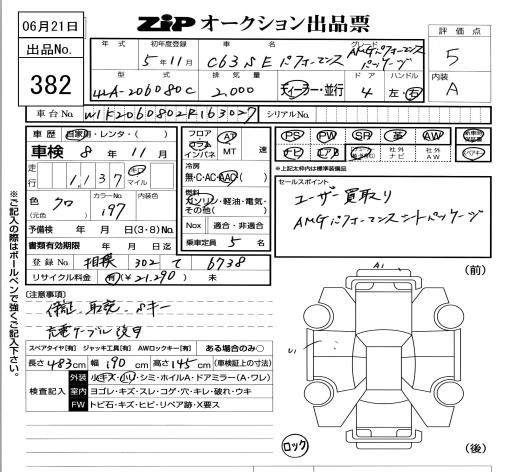 06月21日
ZiP オークション出品票
評価点
5
内装
A
出品No.
382
年式 初年度登録 車名 グレード
5年11月 C63 S E パフォーマンス AMGパフォーマンスパッケージ
型式 排気量 ドア ハンドル
4LA-206080C 2,000 ディーラー・並行 4 左・右
車台No. W1K2060802R163027 シリアルNo.
車歴 自家用・レンタ・( )
車検 8年11月
走行 1,137 キロ マイル
色 クロ (元色) カラーNo. 197 内装色
予備検 年 月 日 (3・8) No.
書類有効期限 年 月 日迄
登録No. 相模 302 て 6738
リサイクル料金 有(¥21,290) 未
フロア・コラム インパネ AT MT 速
冷房 無・C・AC・AAC
燃料 ガソリン・軽油・電気・その他( )
Nox 適合・非適合
乗車定員 5 名
PS PW SR 革 AW 新車時保証書
ナビ エアB 社外ナビ 社外AW スペアキー
※上記太枠内は標準装備品
セールスポイント
ユーザー買取り
AMGパフォーマンスシートパッケージ
(注意事項)
保証、取説、Sキー
充電ケーブル後日
スペアタイヤ[有] ジャッキ工具[有] AWロックキー[有] ある場合のみ○
長さ 483cm 幅 190cm 高さ 145cm (車検証上の寸法)
検査記入
外装 小キズ・小凹・シミ・ホイルA・ドアミラー(A・ワレ)
室内 ヨゴレ・キズ・スレ・コゲ・穴・キレ・破れ・ウキ
FW トビ石・キズ・ヒビ・リペア跡・X要ス
※ご記入の際はボールペンで強くご記入下さい。
A1
(前)
U1
ロック
(後)